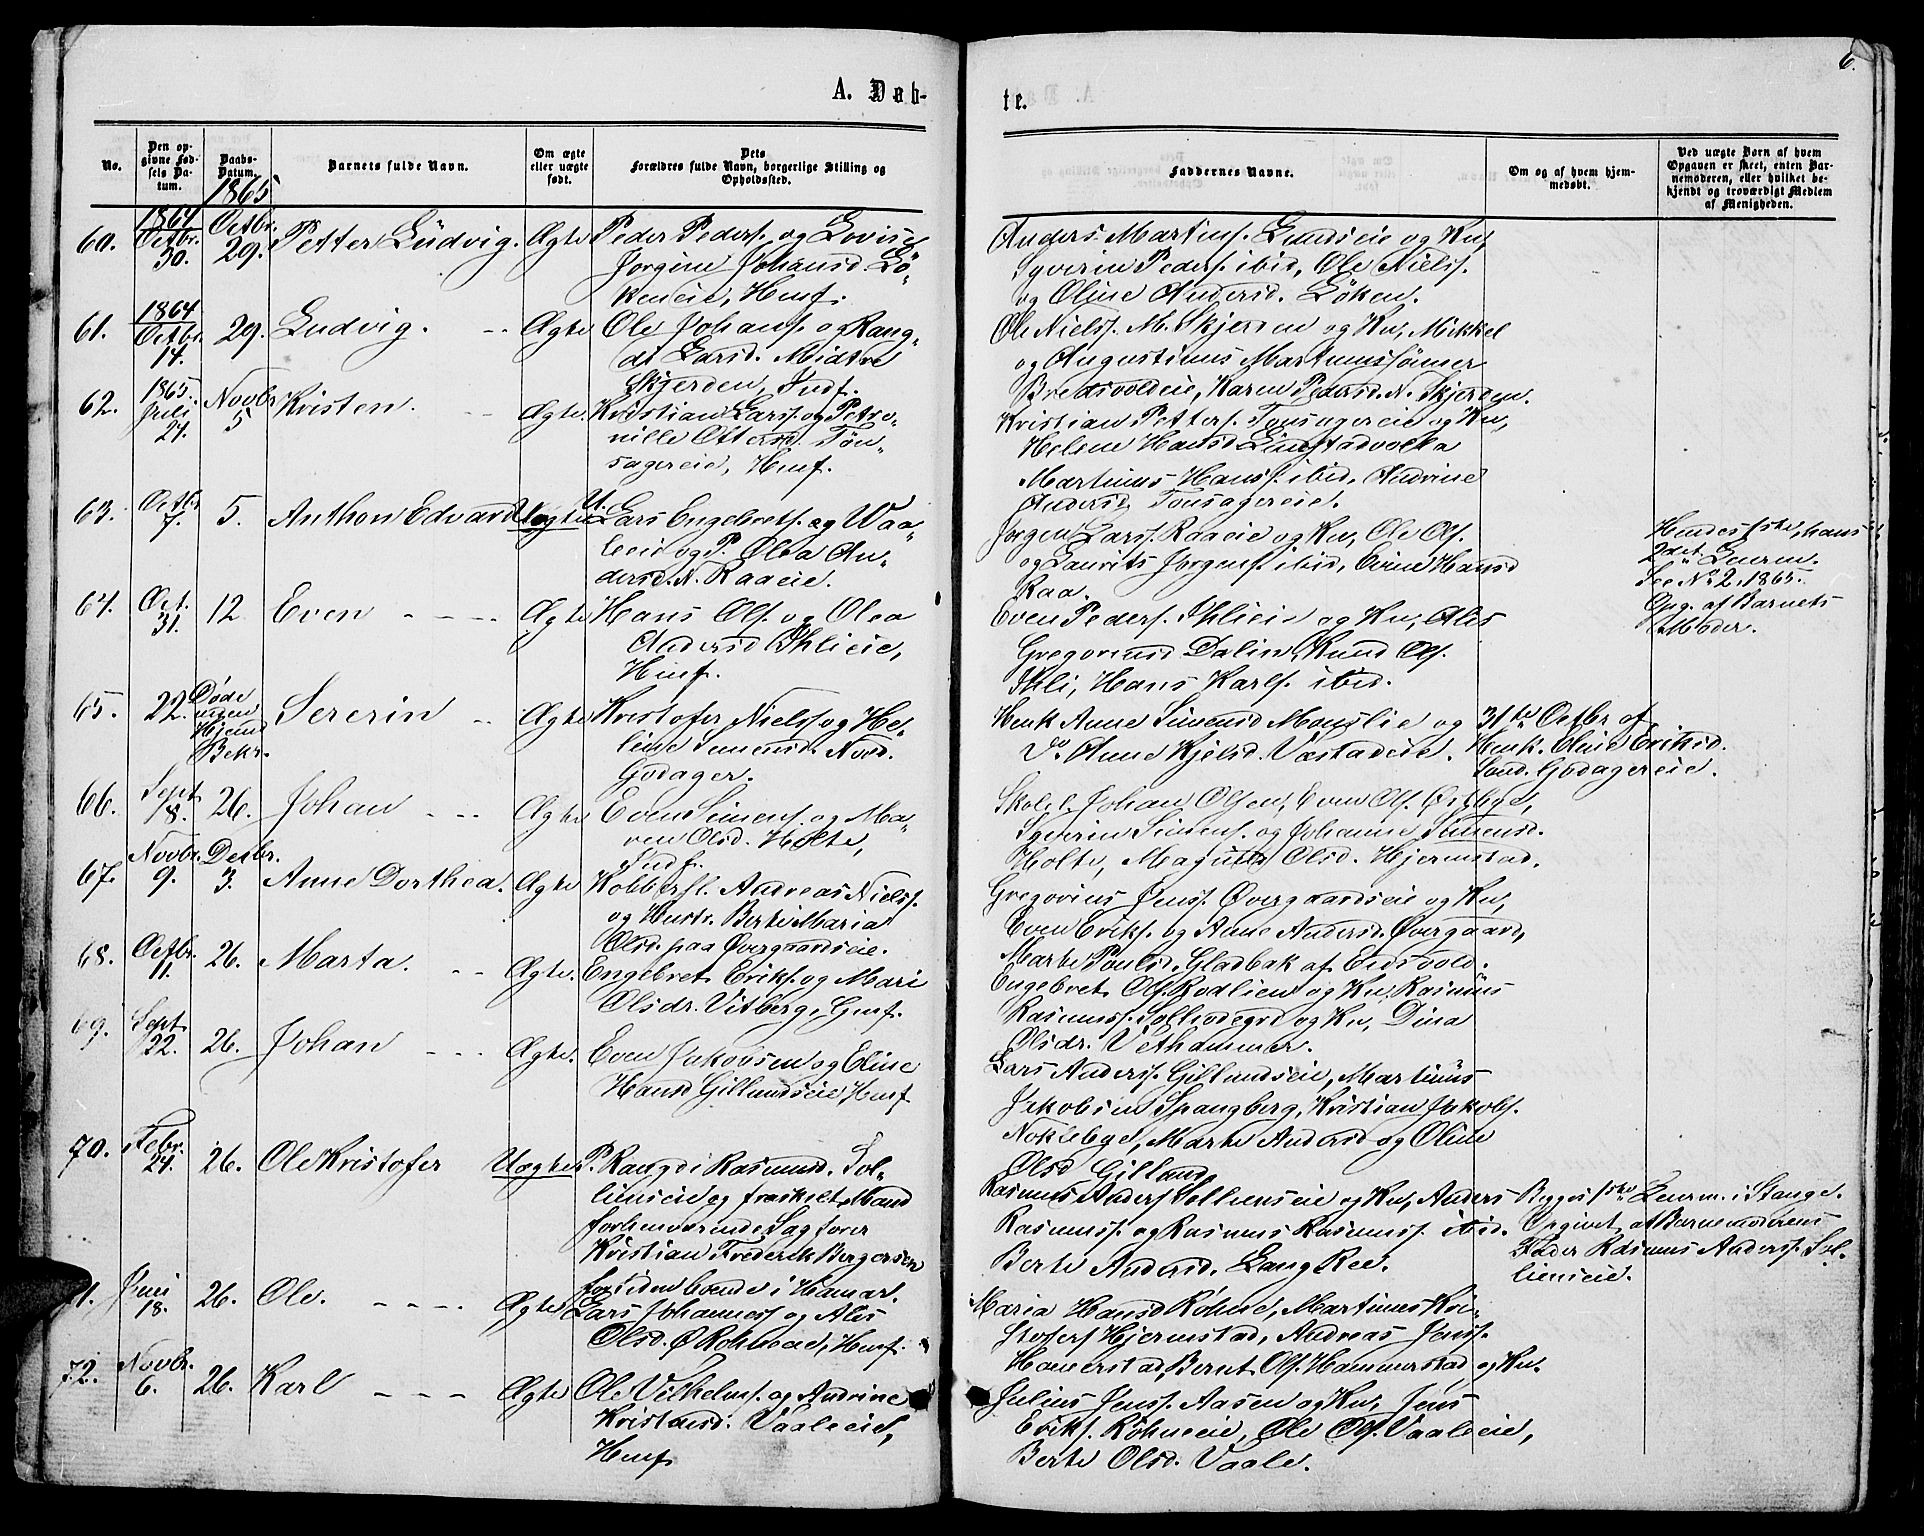 6.
A. Døb-
te.
No.
Den op-
givne Fød-
sels Da-
tum.
Daabs-
Datum.
Barnets fulde Navn.
Om ægte
eller uægte
født.
Dets
Forældres fulde Navn, borgerlige Stilling og
Opholdssted.
Faddernes Navne.
Om og af hvem hjem-
medøbt.
Ved uægte Børn af hvem
Opgaven er skeet, enten Bar-
nemoderen, eller hvilket be-
kjendt og troværdigt Medlem
af Menigheden.
1865
60. 1864 Octbr. 30. Octbr. 29. Petter Ludvig. Ægte
Peder Peders. og Lovise
Jorgine Johansd. Lö-
keneie, Husf.
Anders Martins. Lundseie og Ku,
Syverin Peders. ibid, Ole Niels.
og Oline Andersd. Löken.
61. 1864 Octbr. 14. 29. Ludvig. Ægte
Ole Johans. og Rang-
di Larsd. Midtre
Skjerden, Indf.
Ole Nielss. M. Skjerden og Ku, Mikkel
og Augustinus Martinussönner
Bredsvoldeie, Karen Pedersd. N. Skjerden.
62. 1865. Juli 24. Novbr. 5 Kristen. Ægte.
Kristian Larss. og Petro-
nille Ottersd. Tön-
sagereie, Husf.
Kristian Petters. Tonsagereie og Ku,
Helene Hansd
Martinus Hanss. ibid, Andrine
Andersd. Tonsagereie.
63. Octbr. 7. 5. Anthon Edvard Uægte
U. Lars Engebrets. og Vaa-
leeie og P. Olea An-
dersd. N. Raaeie.
Jorgen Larss. Raaeie og Ku, Ole Ols.
og Laurits Jorgens. ibid, Eline Hansd
Raa.
Hendes 1ste, hans
2det Leierm.
See No 2, 1865.
Opg. af Barnets
Moder.
64. Oct. 31. 12 Even Ægte
Hans Ols. og Olea
Andersd Ihlieie,
Husf.
Even Peders. Ihlieie og Ku, Alis
Gregoriusd Dalin, Knud Ols.
Ihli, Hans Karls. ibid.
65. 22. Døde
uden
Hjem
Bekr. Sererin Ægte
Kristofer Niels. og He-
line Simensd. Nord.
Godager.
Henk Anne Simensd Manslie og
Do Anne Kjelsd. Væstadeie.
31te Octbr. af
Henk. Eline Eriksd.
Sönd. Godagereie.
66. Sept 18. 26. Johan Ægte
Even Simens. og Ma-
ren Olsd. Holte,
Indf.
Skolel. Johan Olsen, Even Ols. Østbye,
Syverin Simens. og Johanne Simensd.
Holte, Magnild Olsd. Hjermstad.
67. Novbr. 9. Decbr. 3. Anne Dorthea. Ægte
Kobbersl. Andreas Nielss.
og Hustr. Berte Maria
Olsd. paa Øvergaardseie.
Gregorius Jenss. Øvergaardseie og Ku,
Even Eriks. og Anne Andersd. Øvergaard,
Marte Poulsd. Gladbak af Eidsvold.
68. Octbr. 11. 26. Marta. Ægte.
Engebret Eriks. og Mari
Olsdr. Vitberg,
Engebret Ols. Rodlien og Ku, Rasmus
Rasmuss. og Ku, Dina
Olsdr. Vethammer.
69. Sept 22. 26. Johan Ægte.
Even Jakobsen og Eline
Hansd Gillundseie, Husf
Lars Anderss. Gillundseie, Martinus
Jakobsen Spangberg, Kristian Jakobs.
Noklebye, Marte Andersd og Oline
Olsd Gillund.
70. Febr. 24. 26. Ole Kristofer Uægte
P. Rangdi Rasmusd. Sol-
lienseie og fraskilt Mand
forhenværende Sagforer
Kristian Frederik Bergersen
for tiden boende i Hamar.
Rasmus Anders. Sollienseie og Ku, Anders
Rasmuss. og Rasmus Rasmuss. ibid.
Berte Andersd. Lang Ree.
Begges 1ste Leierm. i Stange.
Opgivet af Barnemoderens
Fader Rasmus Anderss. Sol-
lienseie.
71. Juni 18. 26. Ole. Ægte
Lars Johanness. og Alis
Olsd. Ø. Rohneeie, Husf.
Maria Hansd Röhne, Martinus Kri-
stofers Hjermstad, Andreas Jenss.
Hamerstad, Bernt Ols. Hammerstad og Ku.
72. Novbr. 6. 26. Karl Ægte
Ole Vilhelms. og Andrine
Kristansd. Vaaleeie,
Husf.
Julius Jenss. Aasen og Ku, Jens
Eriks. Röhneeie, Ole Ols. Vaaleeie,
Berte Olsd. Vaale.